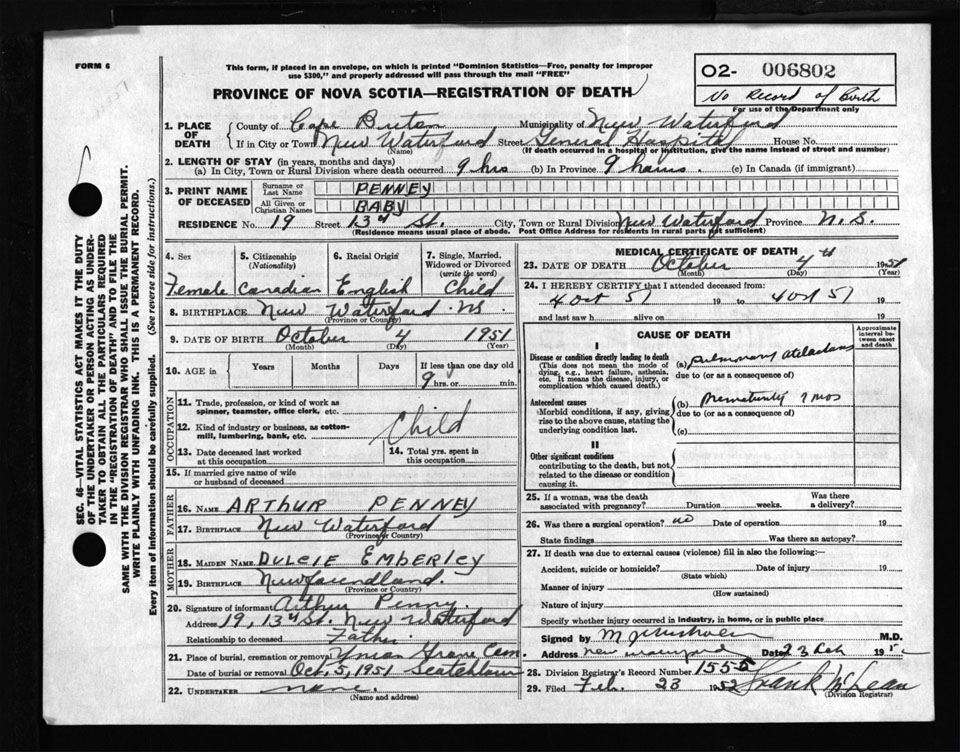 FORM 6
This form, if placed in an envelope, on which is printed "Dominion Statistics—Free, penalty for improper
use $300," and properly addressed will pass through the mail "FREE"
PROVINCE OF NOVA SCOTIA—REGISTRATION OF DEATH
O2- 006802
No Record of Birth
For use of the Department only
1. PLACE OF DEATH
County of Cape Breton Municipality of New Waterford
If in City or Town New Waterford Street General Hospital House No.
(Name) (If death occurred in a hospital or institution, give the name instead of street and number)
2. LENGTH OF STAY (in years, months and days)
(a) In City, Town or Rural Division where death occurred 9 hrs (b) In Province 9 hours. (c) In Canada (if immigrant)
3. PRINT NAME OF DECEASED
Surname or Last Name PENNEY
All Given or Christian Names BABY
RESIDENCE No. 19 Street 13th St. City, Town or Rural Division New Waterford Province N.S.
(Residence means usual place of abode. Post Office Address for residents in rural parts not sufficient)
4. Sex 5. Citizenship (Nationality) 6. Racial Origin 7. Single, Married, Widowed or Divorced (write the word)
Female Canadian English Child
8. BIRTHPLACE New Waterford NS
(Province or Country)
9. DATE OF BIRTH October 4 1951
(Month) (Day) (Year)
10. AGE in Years Months Days If less than one day old
9 hrs. or min.
OCCUPATION
11. Trade, profession, or kind of work as
spinner, teamster, office clerk, etc.
12. Kind of industry or business, as cotton-
mill, lumbering, bank, etc.
Child
13. Date deceased last worked
at this occupation
14. Total yrs. spent in
this occupation
15. If married give name of wife
or husband of deceased
FATHER
16. NAME ARTHUR PENNEY
17. BIRTHPLACE New Waterford
(Province or Country)
MOTHER
18. MAIDEN NAME DULCIE EMBERLEY
19. BIRTHPLACE Newfoundland.
(Province or Country)
20. Signature of informant Arthur Penny.
Address 19, 13th St. New Waterford
Relationship to deceased Father
21. Place of burial, cremation or removal Union Grove Cem.
Date of burial or removal Oct, 5, 1951 Scotchtown
22. UNDERTAKER none.
(Name and address)
MEDICAL CERTIFICATE OF DEATH
23. DATE OF DEATH October 4th 1951
(Month) (Day) (Year)
24. I HEREBY CERTIFY that I attended deceased from:
4 Oct 51 19 to 4 Oct 51 19
and last saw h alive on 19
CAUSE OF DEATH
Approximate interval between onset and death
I
Disease or condition directly leading to death
(This does not mean the mode of
dying, e.g., heart failure, asthenia,
etc. It means the disease, injury, or
complication which caused death.)
(a) pulmonary atelectasis
due to (or as a consequence of)
Antecedent causes
Morbid conditions, if any, giving
rise to the above cause, stating the
underlying condition last.
(b) Prematurity 7 mos
due to (or as a consequence of)
(c)
II
Other significant conditions
contributing to the death, but not
related to the disease or condition
causing it.
25. If a woman, was the death
associated with pregnancy? Duration weeks. Was there a delivery?
26. Was there a surgical operation? no Date of operation 19
State findings Was there an autopsy?
27. If death was due to external causes (violence) fill in also the following:—
Accident, suicide or homicide? Date of injury 19
(State which)
Manner of injury
(How sustained)
Nature of injury
Specify whether injury occurred in industry, in home, or in public place
Signed by M.D.
Address New Waterford Date 23 Feb 1952
28. Division Registrar's Record Number 1555
29. Filed Feb. 23 1952 Frank McLean
(Division Registrar)
SEC. 46—VITAL STATISTICS ACT MAKES IT THE DUTY
OF THE UNDERTAKER OR PERSON ACTING AS UNDER-
TAKER TO OBTAIN ALL THE PARTICULARS REQUIRED
IN THE "REGISTRATION OF DEATH" AND TO FILE THE
SAME WITH THE DIVISION REGISTRAR WHO SHALL ISSUE THE BURIAL PERMIT.
WRITE PLAINLY WITH UNFADING INK. THIS IS A PERMANENT RECORD.
Every item of information should be carefully supplied. (See reverse side for instructions.)